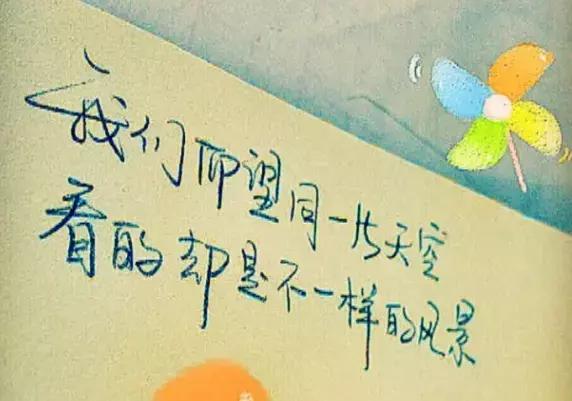 我们仰望同一片天空
看的却是不一样的风景